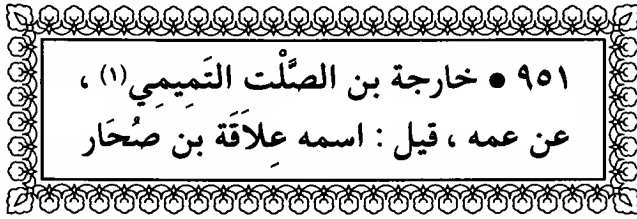 ٩٥١ ● خارجة بن الصَّلْت التَمِيمِي(١) ،
عن عمه ، قيل : اسمه عِلاَقَة بن صُحَار